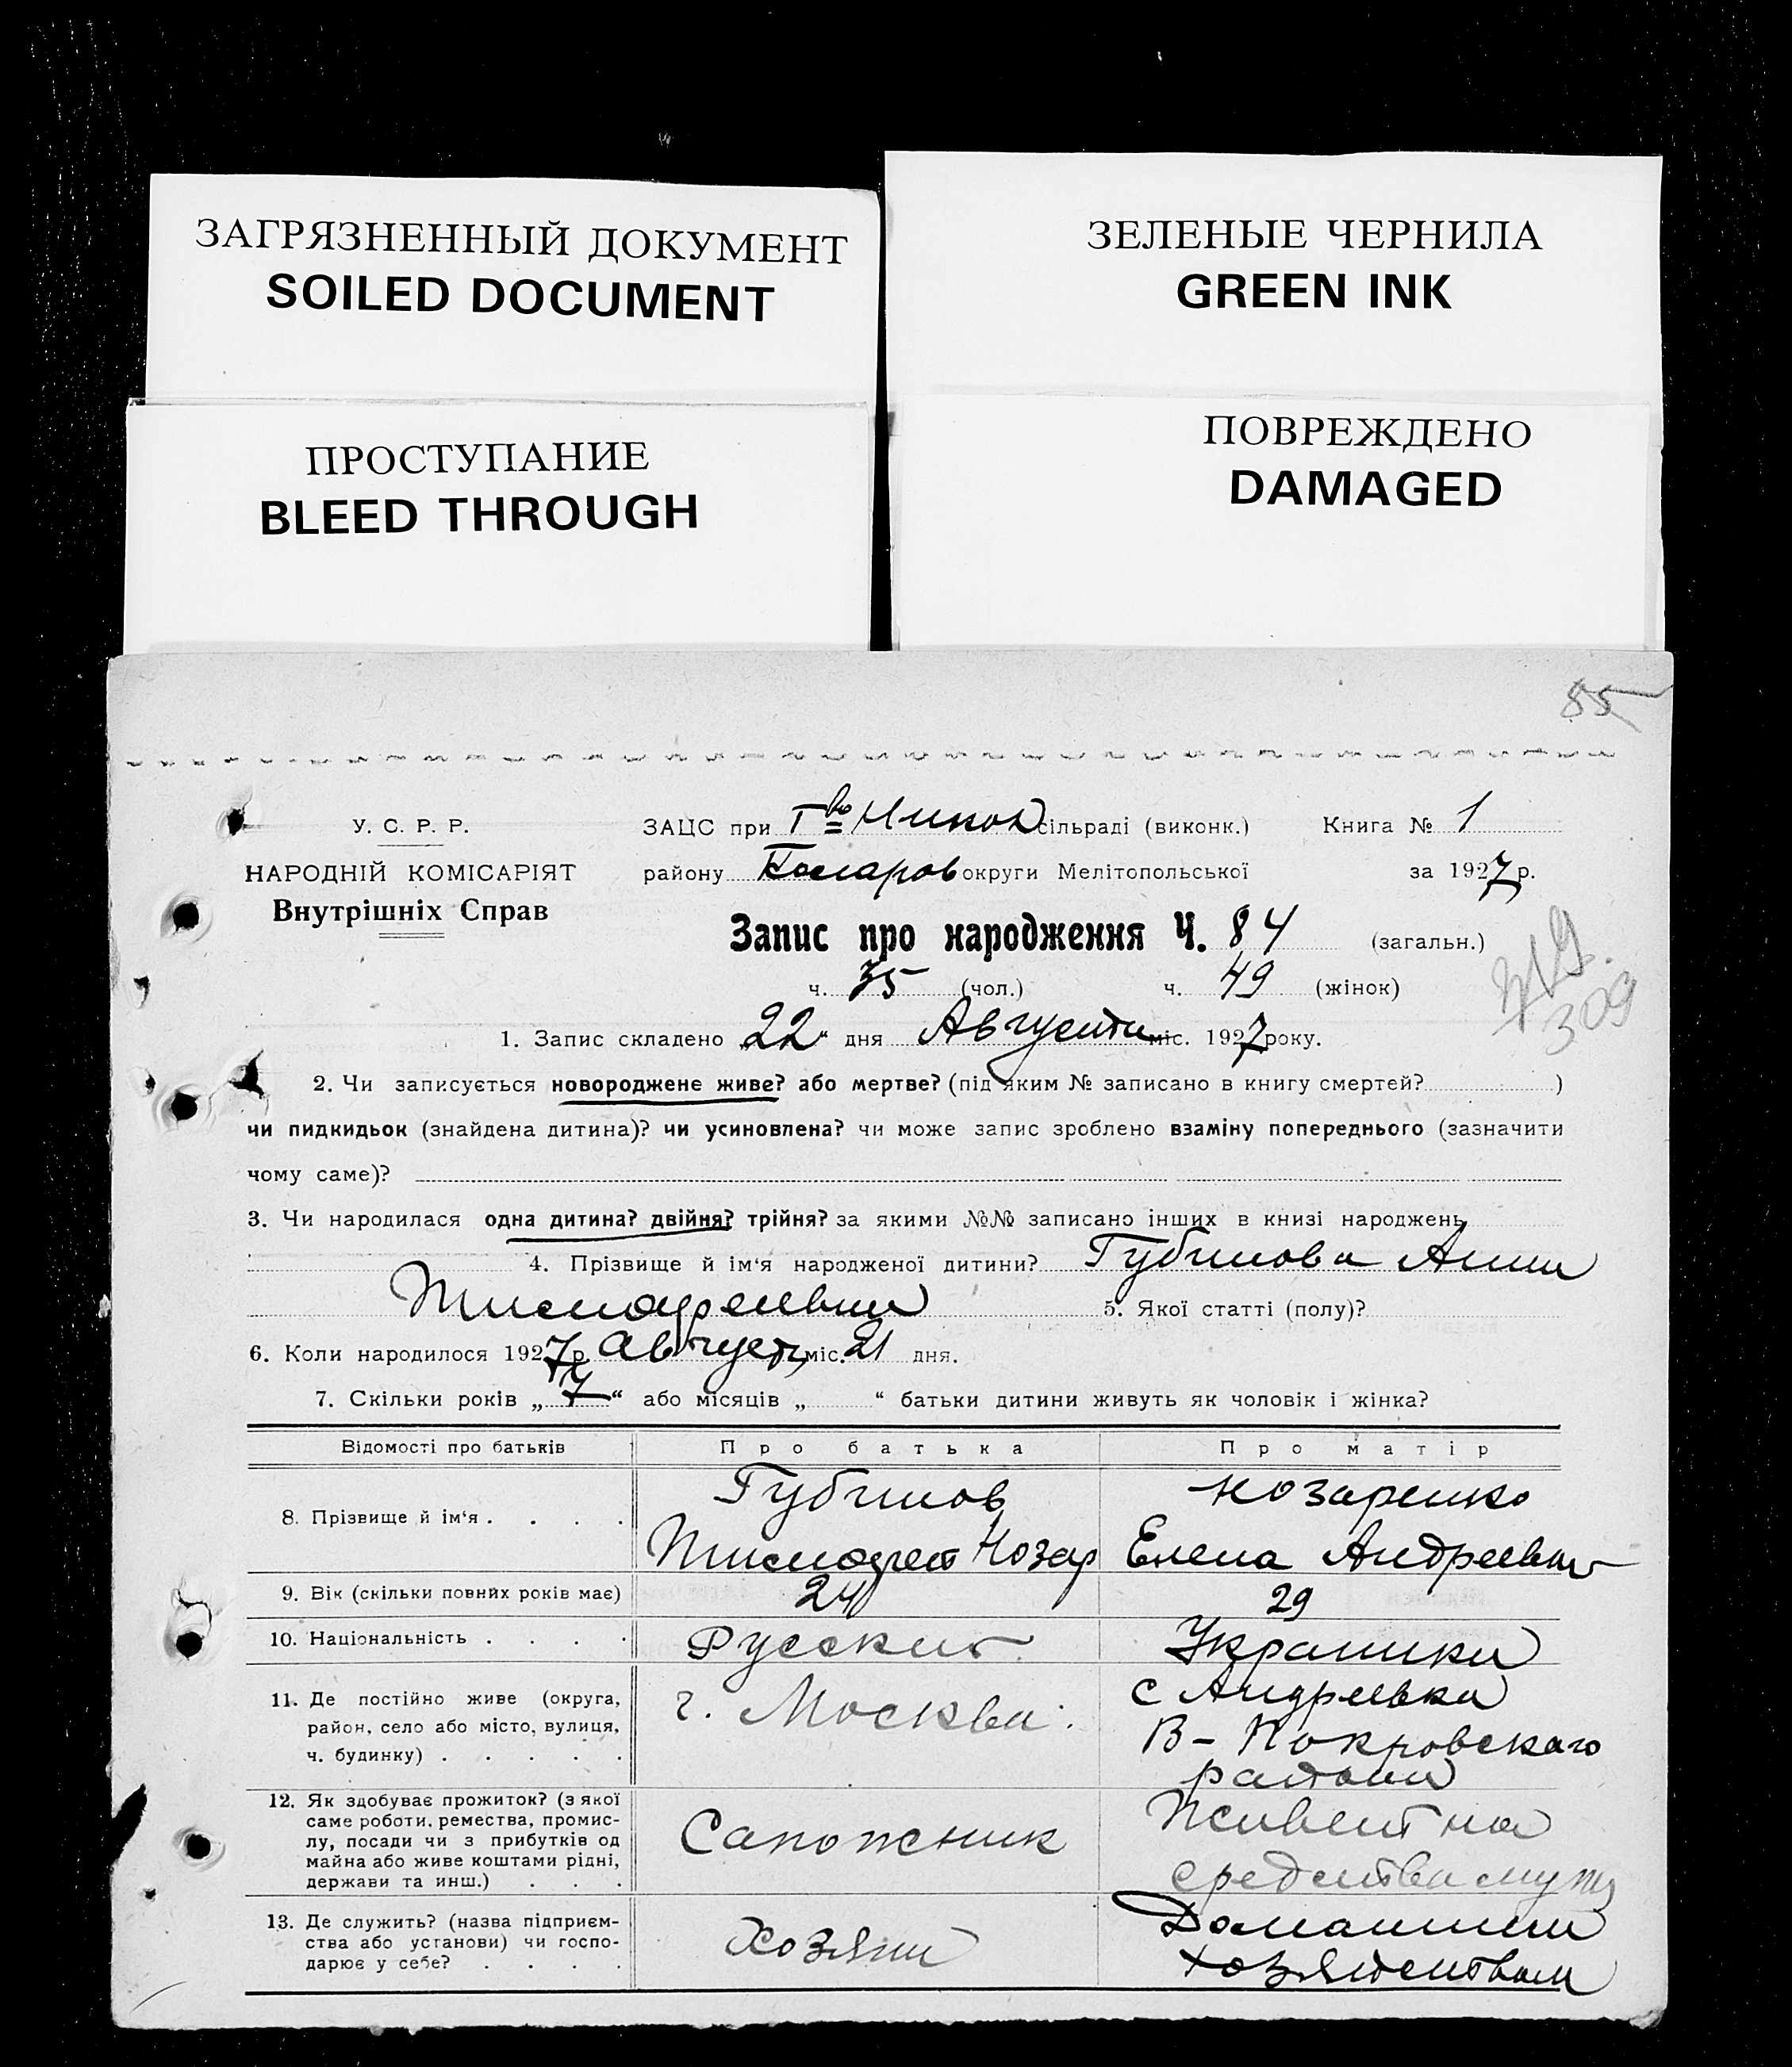 ЗАГРЯЗНЕННЫЙ ДОКУМЕНТ
SOILED DOCUMENT
ЗЕЛЕНЫЕ ЧЕРНИЛА
GREEN INK
ПРОСТУПАНИЕ
BLEED THROUGH
ПОВРЕЖДЕНО
DAMAGED
85
У. С. Р. Р.
НАРОДНІЙ КОМІСАРІЯТ
Внутрішніх Справ
ЗАЦС при сільраді (виконк.) Книга № 1
району округи Мелітопольської за 1927 р.
Запис про народження Ч. 84 (загальн.)
ч. 35 (чол.) ч. 49 (жінок)
309
1. Запис складено „22“ дня Августа міс. 1927 року.
2. Чи записується новороджене живе? або мертве? (під яким № записано в книгу смертей? )
чи пидкидьок (знайдена дитина)? чи усиновлена? чи може запис зроблено взаміну попереднього (зазначити
чому саме)?
3. Чи народилася одна дитина? двійня? трійня? за якими №№ записано інших в книзі народжень
4. Прізвище й ім'я народженої дитини? Анна
5. Якої статті (полу)?
6. Коли народилося 1927 р. Август міс. 21 дня.
7. Скільки років „7“ або місяців „ “ батьки дитини живуть як чоловік і жінка?
Відомості про батьків Про батька Про матір
8. Прізвище й ім'я . . . .
Козаренко
Елена Андреевна
9. Вік (скільки повних років має) 24 29
10. Національність . . . . Русский Украинка
11. Де постійно живе (округа,
район, село або місто, вулиця,
ч. будинку) . . . . .
г. Москва.
с Андреевка
В-Покровскаго
района
12. Як здобуває прожиток? (з якої
саме роботи, ремества, промис-
лу, посади чи з прибутків од
майна або живе коштами рідні,
держави та инш.) . . .
Сапожник
Живет на
средства мужа
13. Де служить? (назва підприєм-
ства або установи) чи госпо-
дарює у себе? . . . .
Хозяин
Домашним
хозяйством